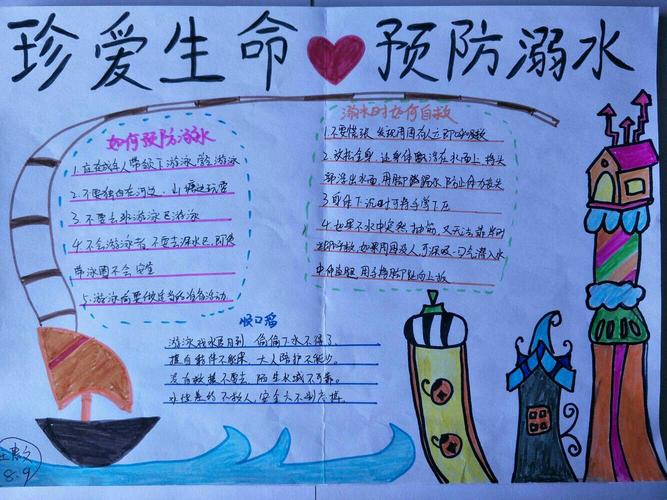 珍爱生命 预防溺水
如何预防溺水
1.应在成人带领下游泳 学会游泳
2.不要独自在河边、山塘边玩耍
3.不要去非游泳区游泳
4.不会游泳者,不要去深水区,即使
带泳圈不会安全
5.游泳前要做适当的准备活动
溺水时如何自救
1.不要慌张,发现周围有人立即呼救
2.放松全身,让身体飘浮在水面上,将头
部浮出水面,用脚踢水,防止体力丧失
3.身体下沉时可将手掌下压
4.如果在水中突然抽筋,又无法靠岸时
立即求救,如果周围没人,可深吸一口气潜入水
顺口溜
游泳戏水要有别 偷偷下水不得了。
擅自 大人陪护不能少。
盲目救援不要去,陌生水域不可靠。
8.9